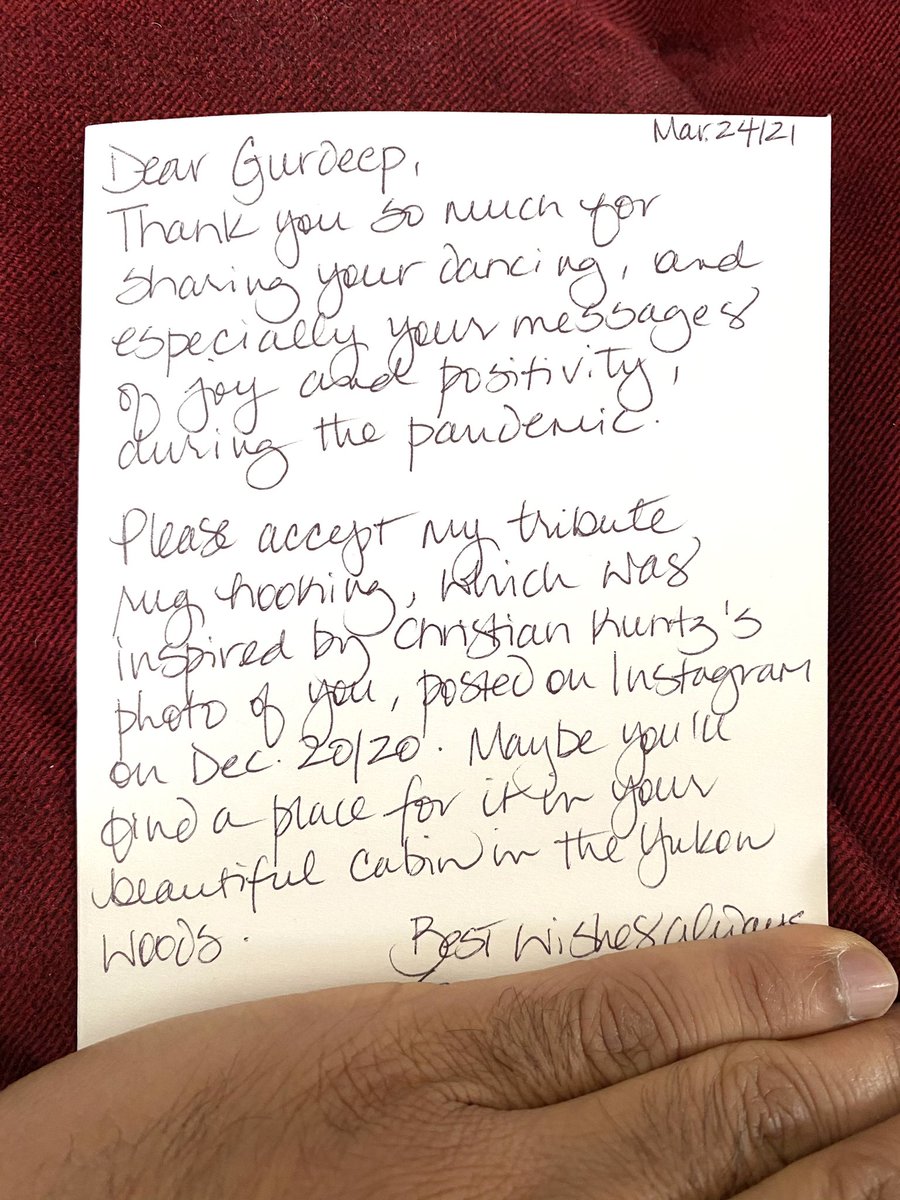 Mar. 24/21
Dear Gurdeep,
Thank you so much for
sharing your dancing, and
especially your messages
of joy and positivity,
during the pandemic.
Please accept my tribute
rug hooking, which was
inspired by Christian Kuntz's
photo of you, posted on Instagram
on Dec. 20/20. Maybe you'll
find a place for it in your
beautiful cabin in the Yukon
Woods.
Best Wishes always